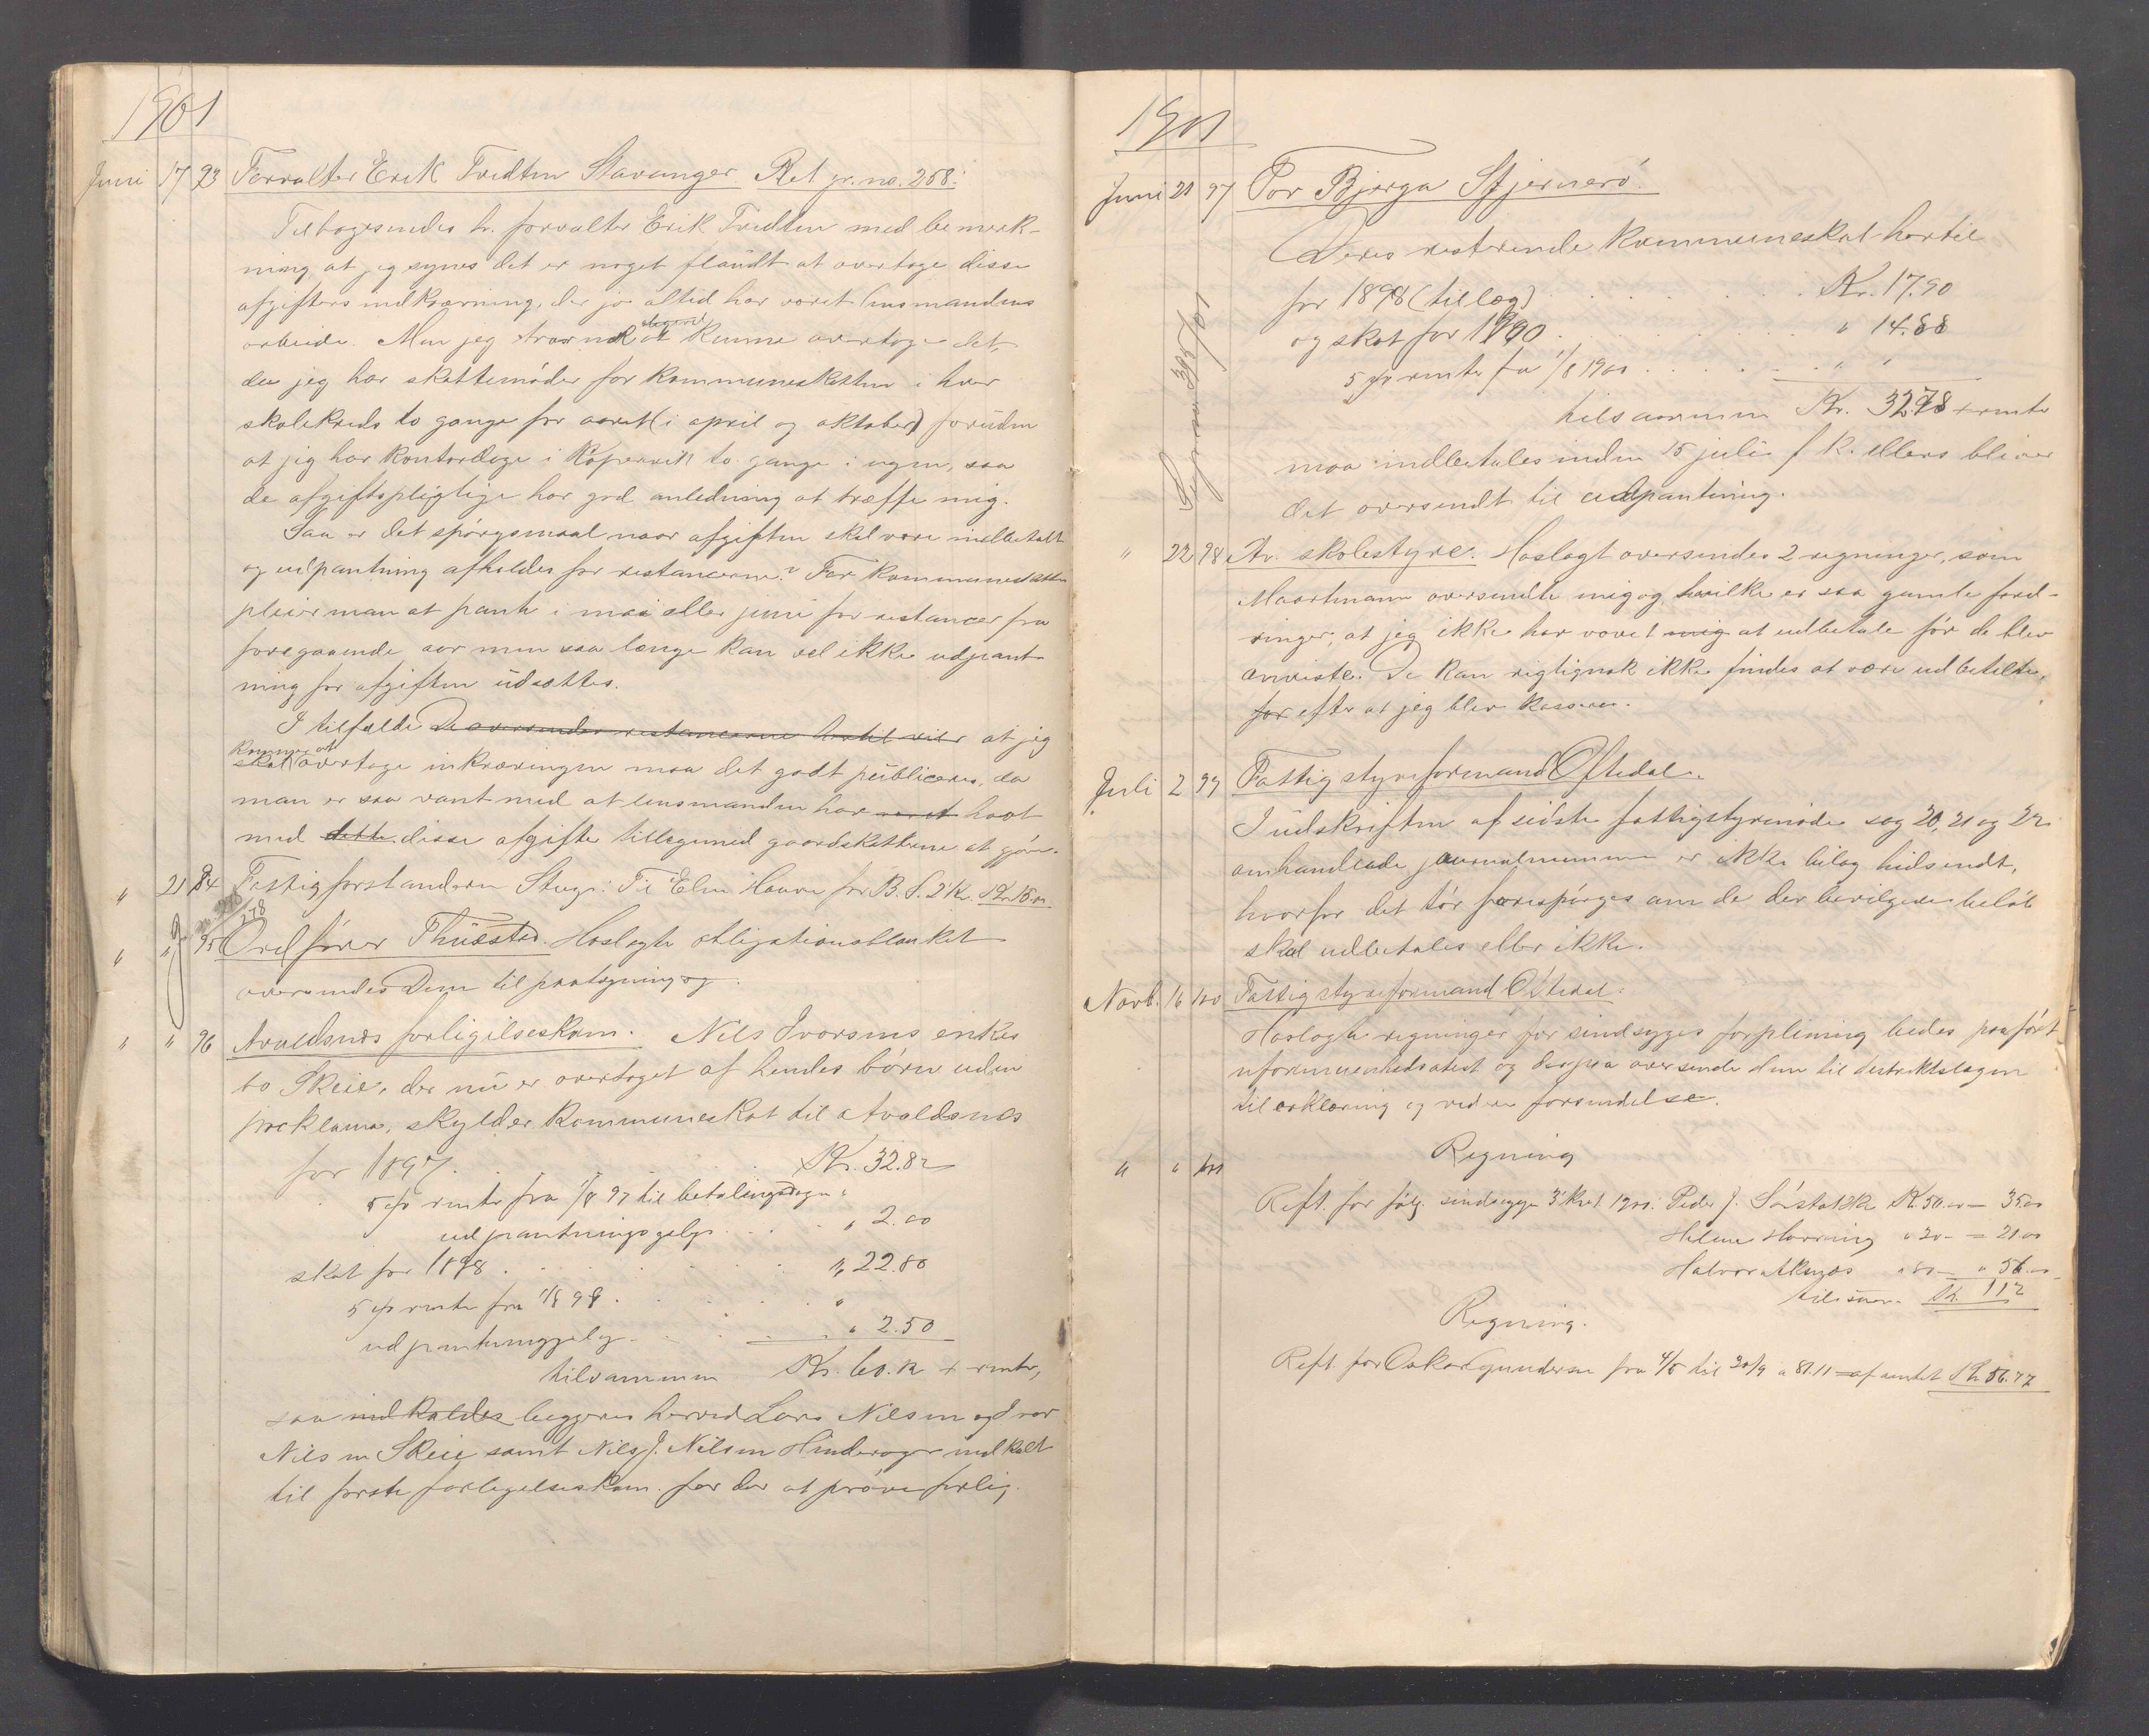 1901
Juni 17 93 Forvalter Erik Tvedten Stavanger. Ret gr. no. 258.
Tilbagesendes hr. forvalter Erik Tvedten med bemærk-
ning, at jeg synes det er noget flaudt at overtage disse
afgifters indkrævning, der jo altid har været lensmandens
arbeide. Men jeg at kunne overtage det,
da jeg har skattemøder for kommuneskatten i hver
skolekreds to gange for aaret (i april og oktober) foruden
at jeg har kontordage i Kopervik to gange i ugen, saa
de afgiftspligtige har god anledning at træffe mig.
Saa er det spørgsmaal naar afgiften skal være indbetalt
og udpantning afholdes for restancerne? For kommuneskatten
pleier man at pante i mai eller juni for restancer fra
foregaaende aar men saa længe kan vel ikke udpant-
ning for afgiften udsættes.
I tilfælde De oversender restancerne hertil at jeg
kommer at
skal overtage inkrævningen maa det godt publiceres, da
man er saa vant med at lensmanden har været havt
med dette disse afgifter tilligemed gaardskatterne at gjøre.
" 21 94 Fattigforstanderen Stange: Til Elen Hauge for B. S. 2 Kv. Kr. 15.00
" " 95 Ordfører Thuestad. Hoslagte obligationsblanket
oversendes Dem til paategning og
" " 96 Avaldsnes forligelseskom. Nils Ivarsens enkes
bo Skeie, der nu er overtaget af hendes børn uden
proklama, skylder kommuneskat til Avaldsnes
for 1897. Kr. 32.82
5 % rente fra 1/8 97 til betalingsdagen "
udpantningsgebyr . . . " 2.00
skat for 1898 . . . . . . " 22.80
5 % rente fra 1/8 98 . . . . "
udpantningsgebyr . . . . " 2.50
tilsammen Kr. 60.12 + rente,
saa indkaldes begjæres herved Lars Nilsen og Ivar
Nilsen Skeie samt Nils J. Nilsen Hinderager indkaldt
til første forligelseskom. for der at prøve forlig.
1901
Juni 21 97 Tor Bjerga Stjernerø.
Deres resterende kommuneskat hertil
for 1898 (tillæg) . . . . . . . Kr. 17.90
og skat for 1900 . . . . . . . " 14.88
5 % rente fra 1/8 1900 . . . . . " "
tilsammen Kr. 32.78 + rente
maa indbetales inden 15 juli f. k. ellers bliver
det oversendt til udpantning.
" 22 98 Av. skolestyre. Hoslagt oversendes 2 regninger, som
Maartmann oversendte mig og hvilke er saa gamle ford-
ringer, at jeg ikke har vovet mig at udbetale før de blev
anviste. De kan rigtignok ikke findes at være udbetalte,
for efter at jeg blev kasserer.
Juli 2 99 Fattigstyreformand Oftedal.
I udskriften af sidste fattigstyremøde sag 20, 21 og 22
omhandlede journalnummer er ikke bilag hidsendt,
hvorfor det tør forespørges om de der bevilgede beløb
skal udbetales eller ikke.
Novb. 16 100 Fattigstyreformand Oftedal.
Hoslagte regninger for sindsyges forpleining bedes paaført
uformuenhedsatest og derpaa oversende dem til distriktslægen
til erklæring og videre forsendelse.
" " 101 Regning
Reft. for følg. sindssyge 3 kvt. 1901. Peder J. Sørstokke K. 50.00 — 35.00
Helene Havring " 30 — = 21.00
Halvor Atknæs " 80 — " 56.00
tilsam. Kr. 112
Regning.
Reft. for Oskar Gundersen fra 4/5 til 30/9 a 81.11 = af amtet Kr. 56.77